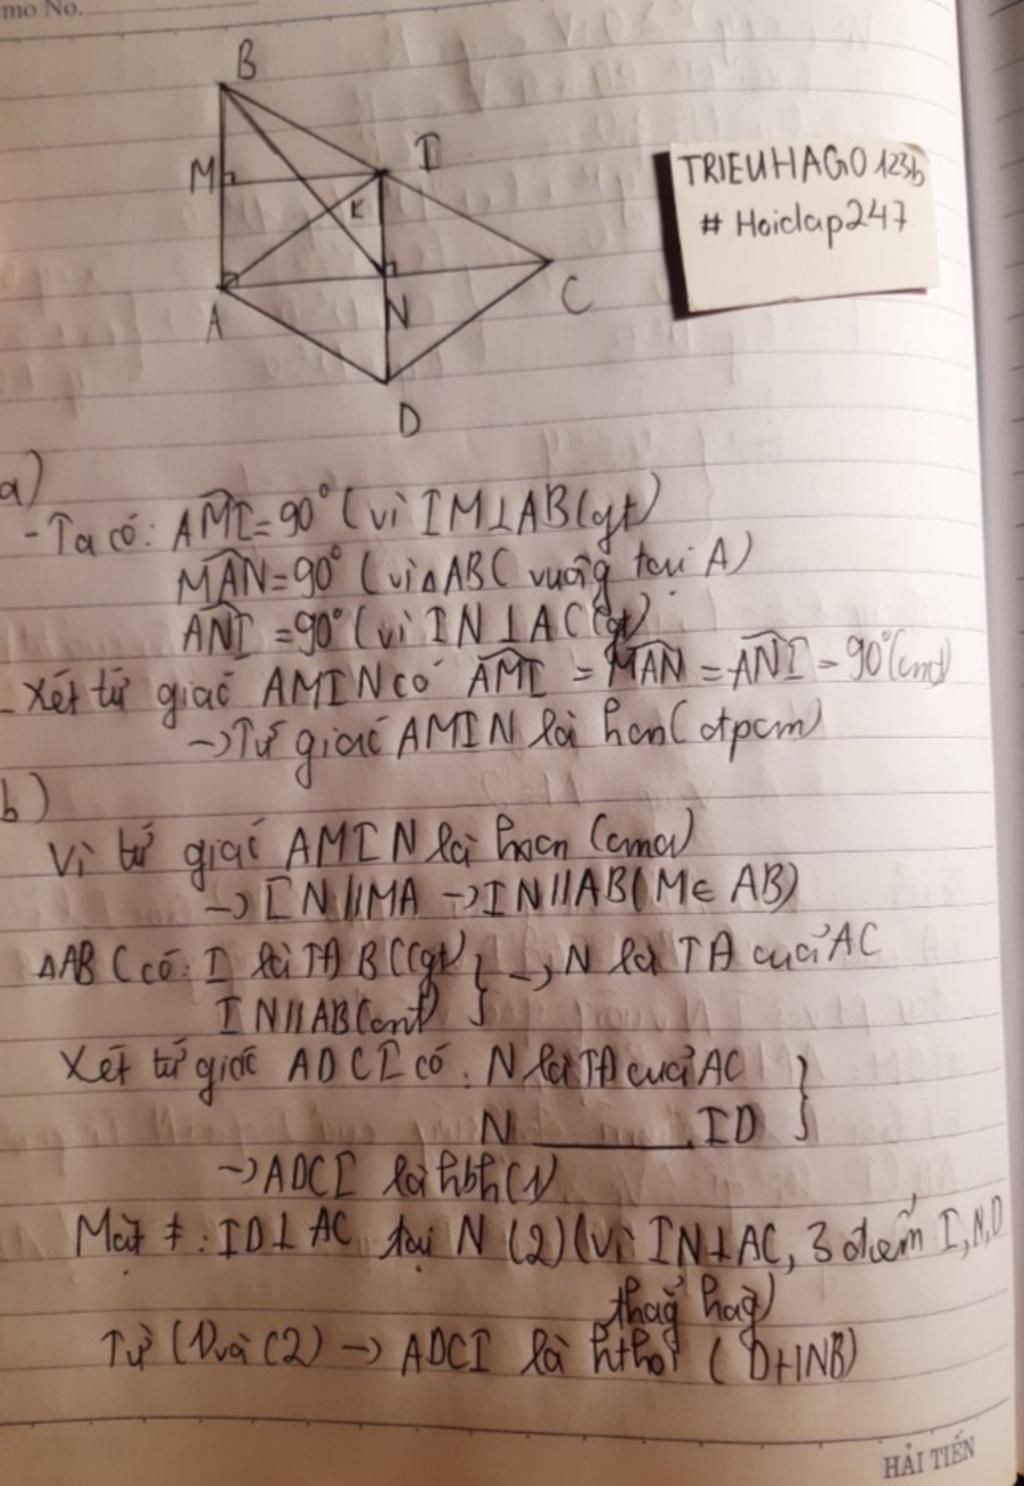 mo No.
B
M
I
K
A
N
C
D
TRIEUHAGO123b
# Hoidap247
a)
- Ta có: AMI = 90° (vì IM⊥AB(gt)
MAN = 90° (vì △ABC vuông tại A)
ANI = 90° (vì IN⊥AC(gt)
- Xét tứ giác AMIN có AMI = MAN = ANI = 90° (cmt)
→ Tứ giác AMIN là hcn (đpcm)
b)
Vì tứ giác AMIN là hcn (cma)
→ IN//MA → IN//AB (M∈AB)
△ABC có: I là TĐ BC(gt) } → N là TĐ của AC
IN//AB(cmt)
Xét tứ giác ADCI có: N là TĐ của AC }
N ID
→ ADCI là hbh (1)
Mặt ≠: ID⊥AC tại N (2) (vì IN⊥AC, 3 điểm I,N,D
thẳg hàg)
Từ (1) và (2) → ADCI là hthoi (DHNB)
HẢI TIẾN